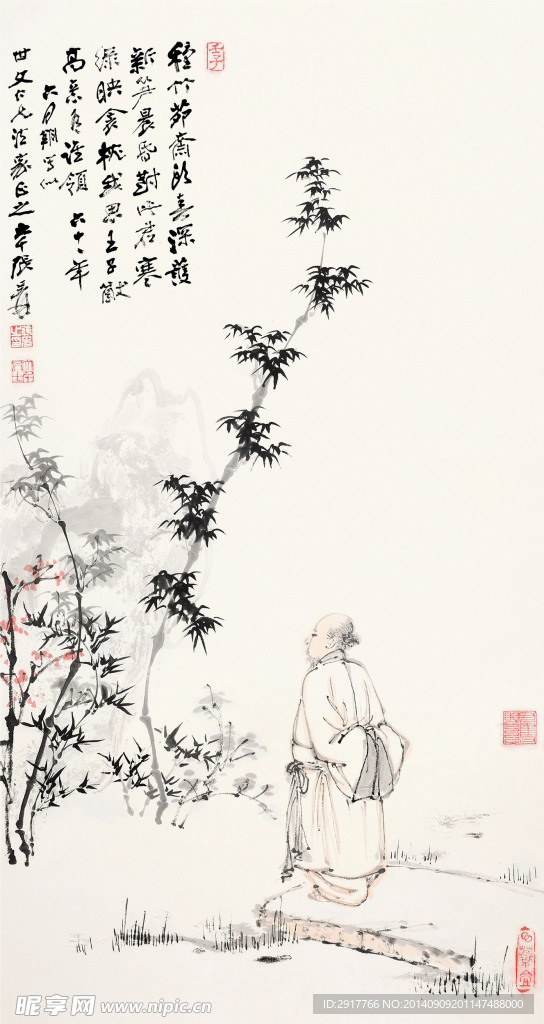 壬子
種竹茆齋頭喜深護
新笋晨昏對此君寒
綠映衾枕緬思王子猷
高意誰領 六十一年
六月朔寫似
世文仁兄法家正之 大千張爰
昵享网 www.nipic.cn
ID:2917766 NO:20140909201147488000